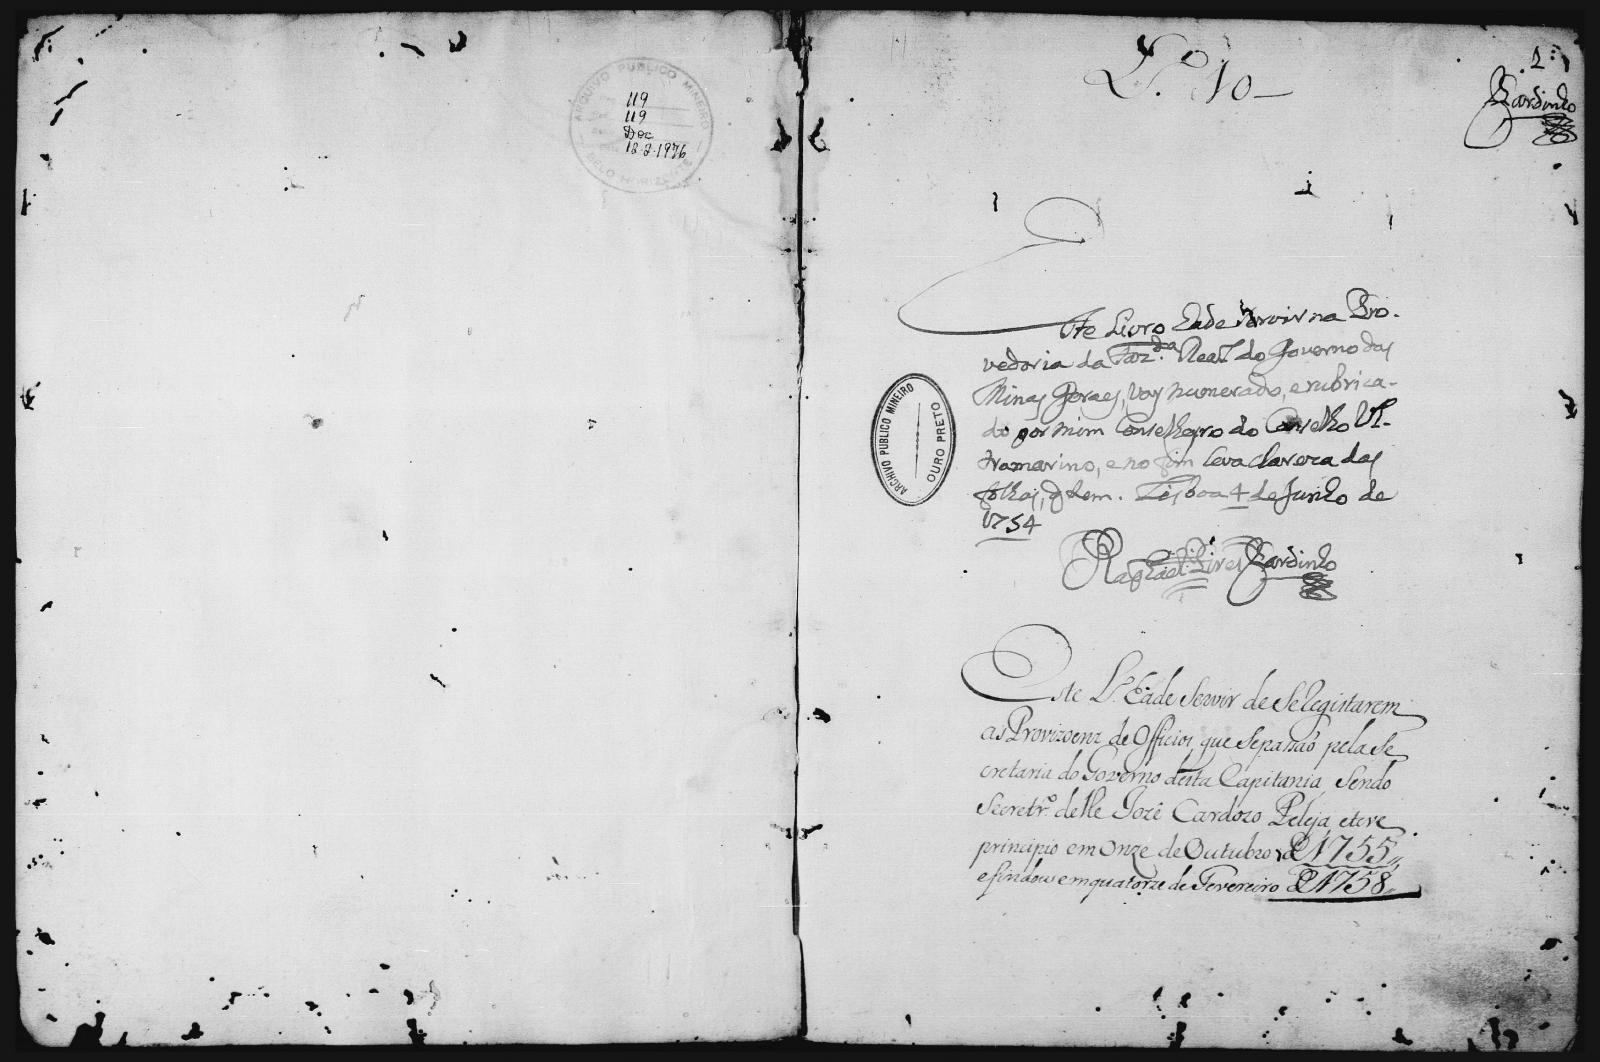 ARQUIVO PUBLICO MINEIRO
BELO HORIZONTE
119
119
Doc
18-2-1976
L.º 10
1
Cardinho
Este Livro hade servir na Pro-
vedoria da Faz.da Real do Governo das
Minas Geraes, vay numerado, e rubrica-
do por mim Conselheyro do Conselho Ul-
tramarino, e no fim leva clareza das
folhas, q̃ tem. Lisboa 4 de Junho de
1754
Raphael Pires Pardinho
ARCHIVO PUBLICO MINEIRO
OURO PRETO
Este L.º hade Servir de Se Registarem
as Provizoenz de Officios, que Sepassaõ pela Se
cretaria do Governo desta Capitania, Sendo
Secretr.º delle Jozê Cardozo Peleja, eteve
principio em Onze de Outubro de 1755,,
efindou em quatorze de Fevereiro de 1758,,